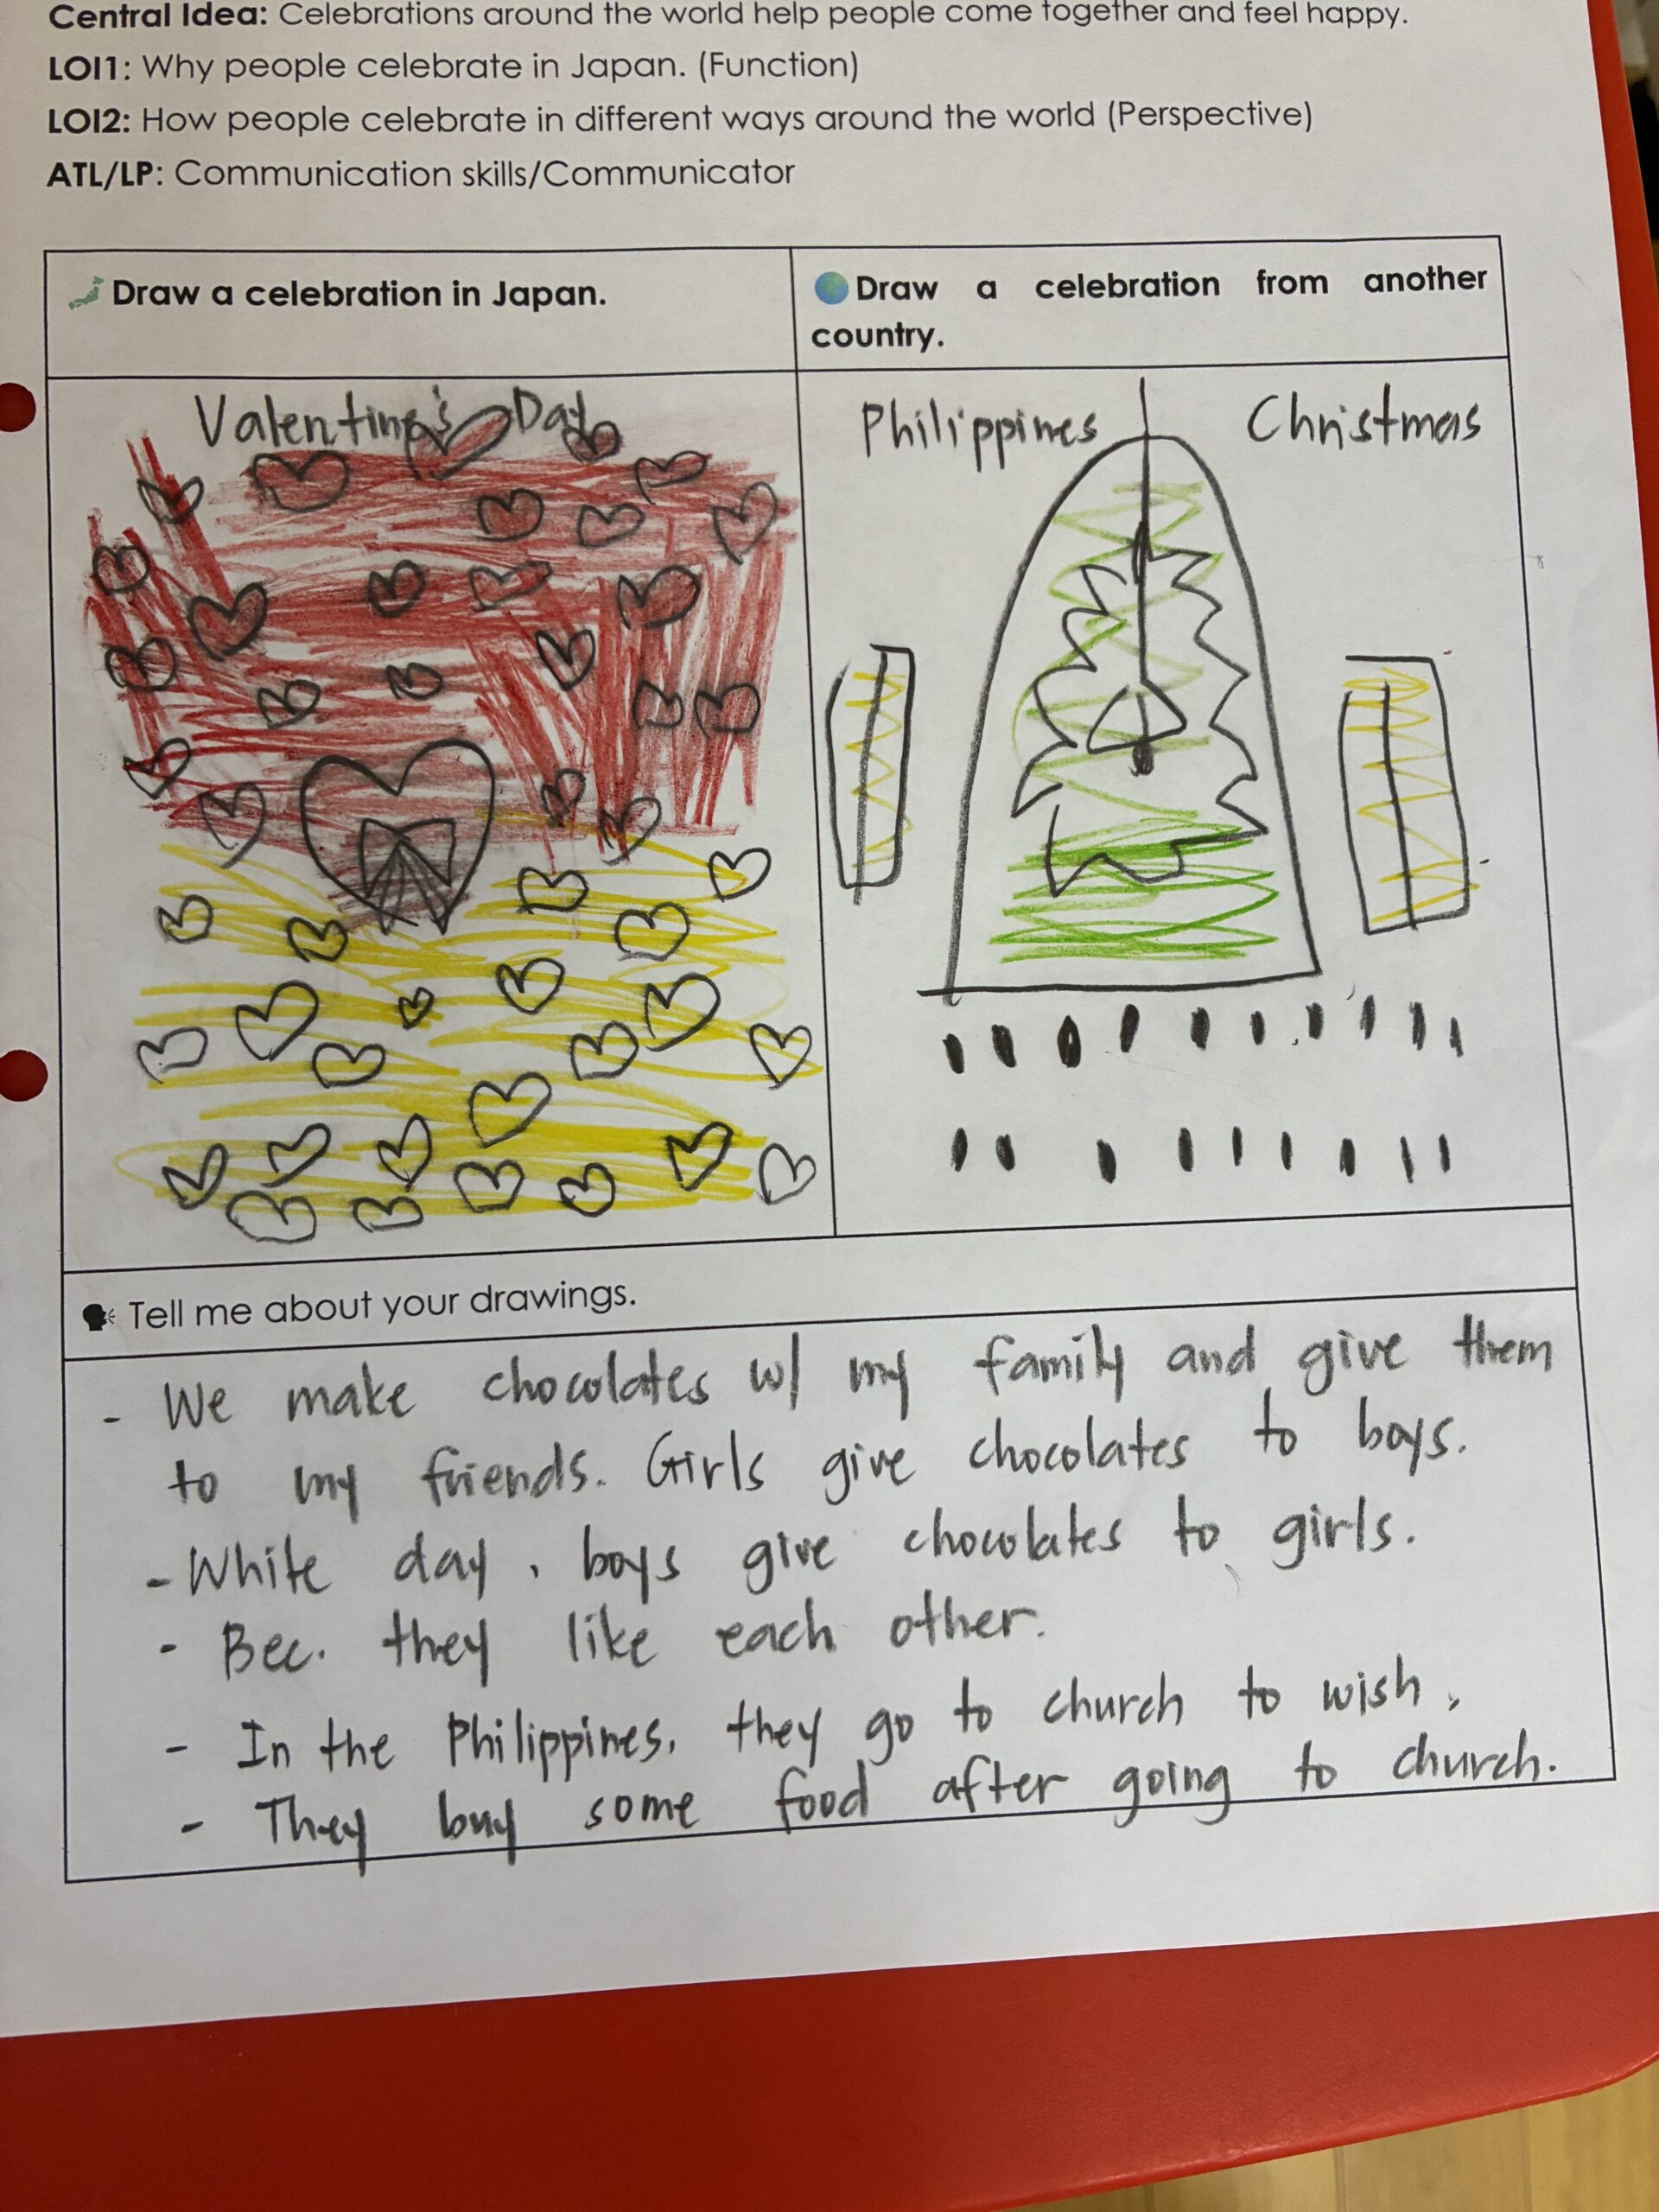 Central Idea: Celebrations around the world help people come together and feel happy.
LOI1: Why people celebrate in Japan. (Function)
LOI2: How people celebrate in different ways around the world (Perspective)
ATL/LP: Communication skills/Communicator
Draw a celebration in Japan.
Draw a celebration from another
country.
Valentine's Day
Philippines Christmas
Tell me about your drawings.
- We make chocolates w/ my family and give them
to my friends. Girls give chocolates to boys.
- White day, boys give chocolates to girls.
- Bec. they like each other.
- In the Philippines, they go to church to wish.
- They buy some food after going to church.